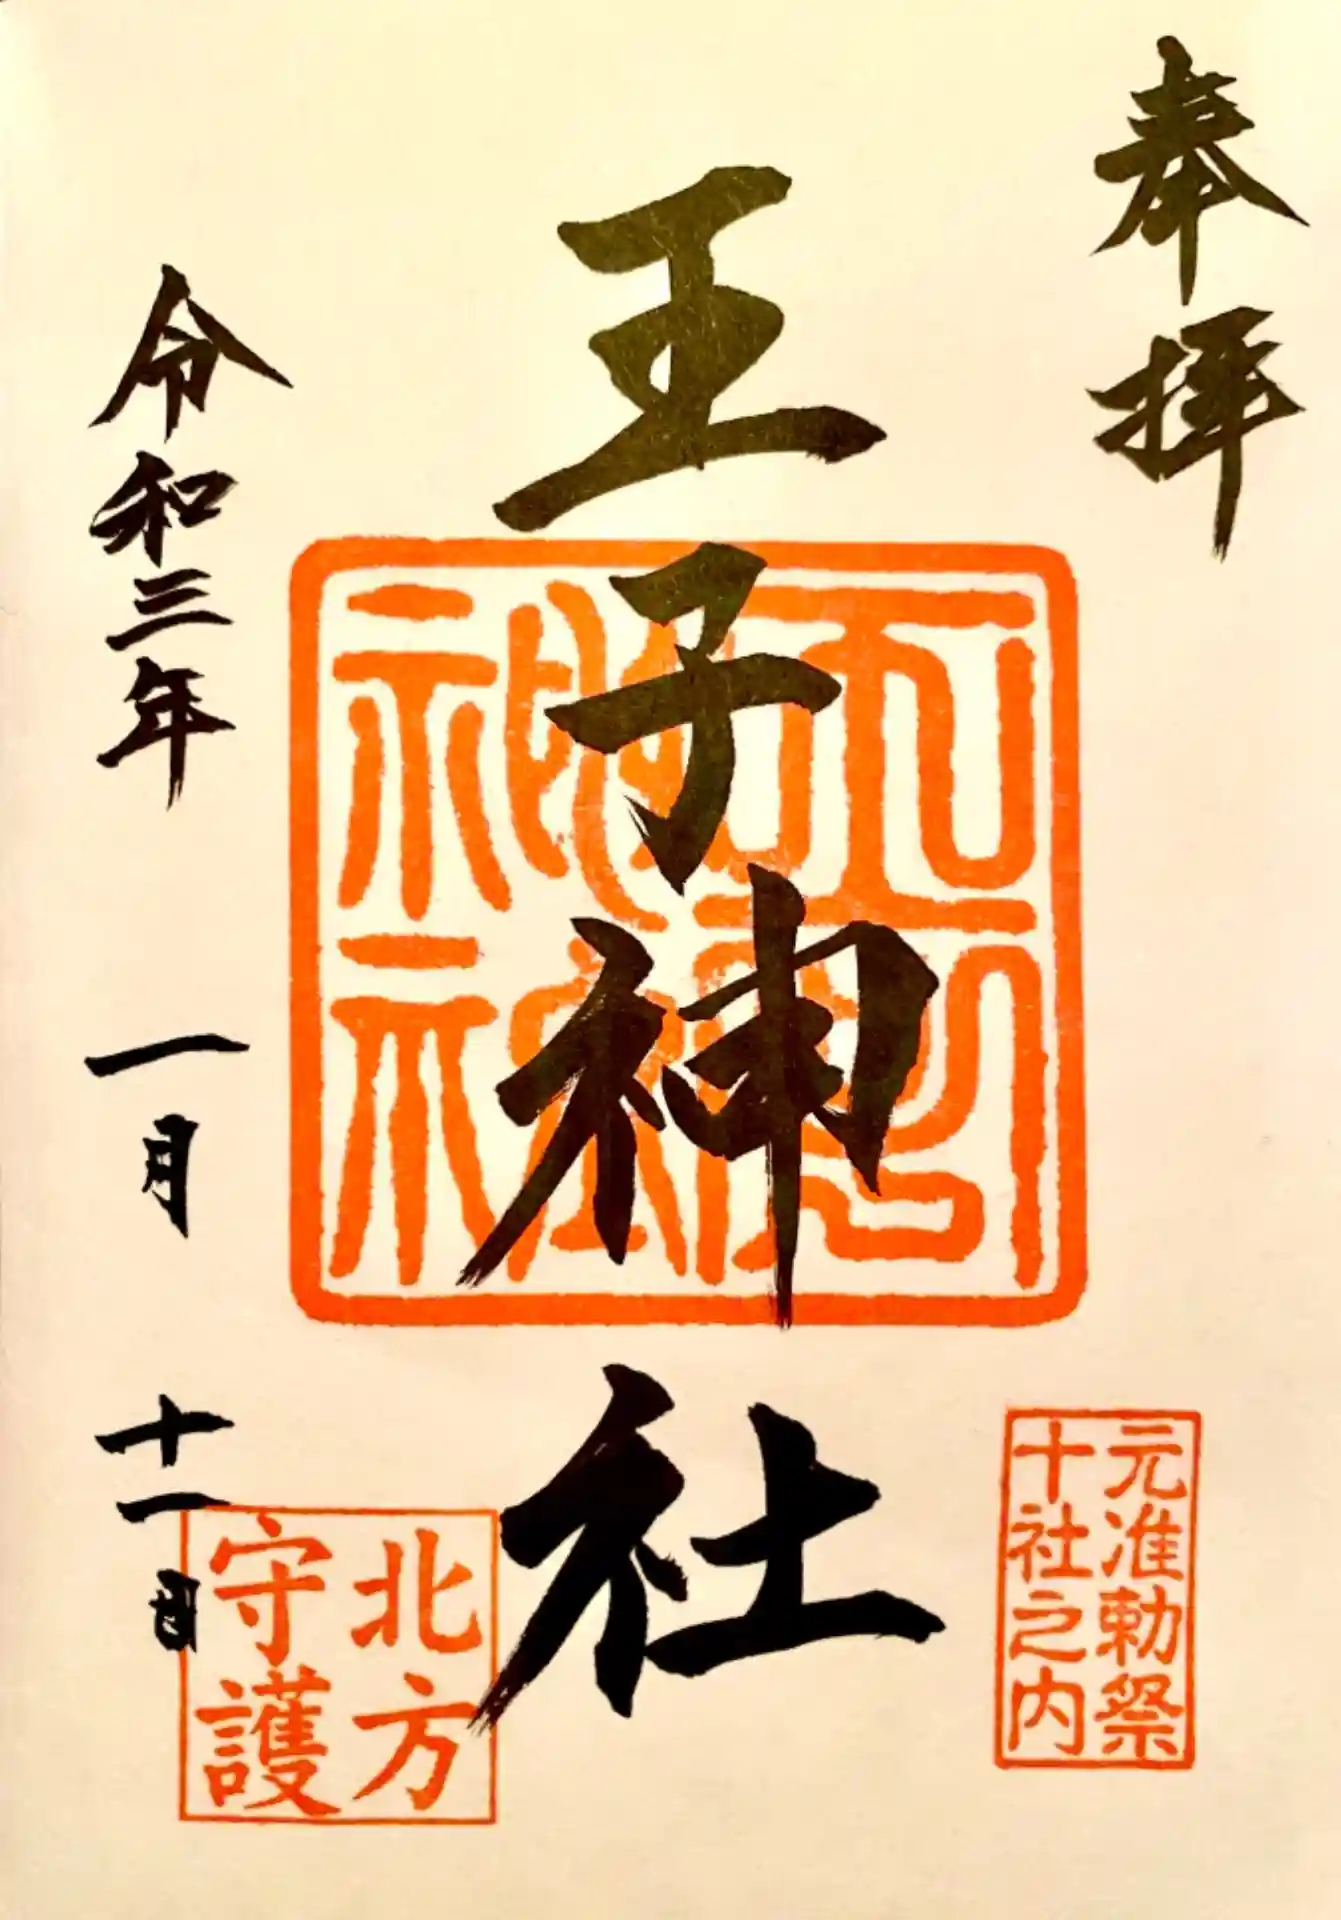 奉拝
元准勅祭
十社之内
王子神社
北方
守護
令和三年一月十一日